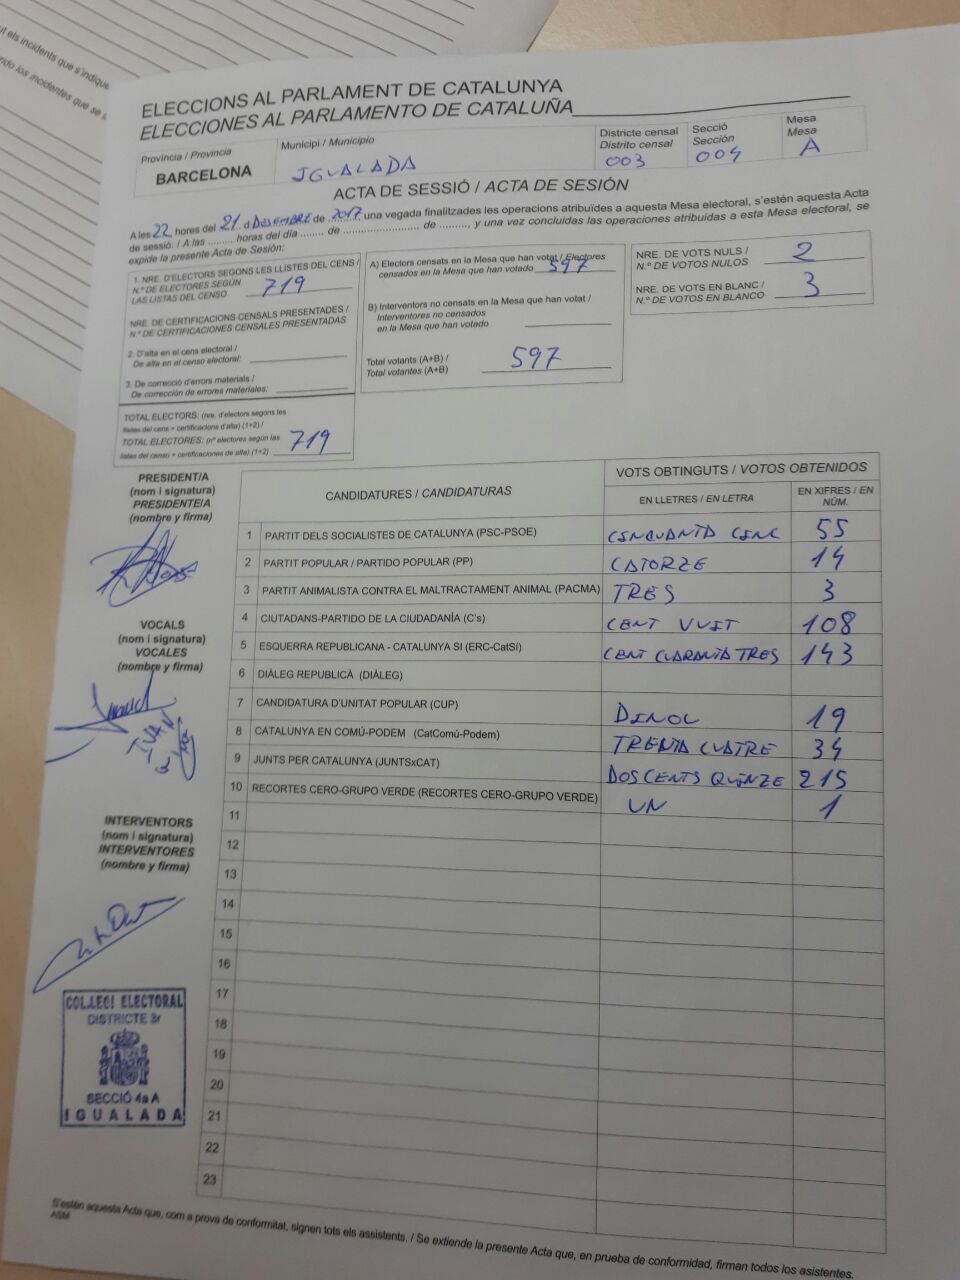 ut els incidents que s'indique
rido los incidentes que se
ELECCIONS AL PARLAMENT DE CATALUNYA
ELECCIONES AL PARLAMENTO DE CATALUÑA
Província / Provincia
BARCELONA
Municipi / Municipio
IGUALADA
Districte censal
Distrito censal
003
Secció
Sección
004
Mesa
Mesa
A
ACTA DE SESSIÓ / ACTA DE SESIÓN
A les 22 hores del 21 d DESEMBRE de 2017 una vegada finalitzades les operacions atribuïdes a aquesta Mesa electoral, s'estén aquesta Acta
de sessió: / A las ......... horas del día ........ de .......................... de .........., y una vez concluidas las operaciones atribuidas a esta Mesa electoral, se
expide la presente Acta de Sesión:
1. NRE. D'ELECTORS SEGONS LES LLISTES DEL CENS /
N.º DE ELECTORES SEGÚN
LAS LISTAS DEL CENSO 719
NRE. DE CERTIFICACIONS CENSALS PRESENTADES /
N.º DE CERTIFICACIONES CENSALES PRESENTADAS
2. D'alta en el cens electoral /
De alta en el censo electoral:
3. De correcció d'errors materials /
De corrección de errores materiales:
TOTAL ELECTORS: (nre. d'electors segons les
llistes del cens + certificacions d'alta) (1+2) /
TOTAL ELECTORES: (nº electores según las
listas del censo + certificaciones de alta) (1+2) 719
A) Electors censats en la Mesa que han votat / Electores
censados en la Mesa que han votado 597
B) Interventors no censats en la Mesa que han votat /
Interventores no censados
en la Mesa que han votado
Total votants (A+B) /
Total votantes (A+B) 597
NRE. DE VOTS NULS /
N.º DE VOTOS NULOS 2
NRE. DE VOTS EN BLANC /
N.º DE VOTOS EN BLANCO 3
PRESIDENT/A
(nom i signatura)
PRESIDENTE/A
(nombre y firma)
VOCALS
(nom i signatura)
VOCALES
(nombre y firma)
IVAN
INTERVENTORS
(nom i signatura)
INTERVENTORES
(nombre y firma)
COL.LEGI ELECTORAL
DISTRICTE 3r
SECCIÓ 4a A
IGUALADA
CANDIDATURES / CANDIDATURAS
VOTS OBTINGUTS / VOTOS OBTENIDOS
EN LLETRES / EN LETRA
EN XIFRES / EN
NÚM.
1 PARTIT DELS SOCIALISTES DE CATALUNYA (PSC-PSOE) CINCUANTA CINC 55
2 PARTIT POPULAR / PARTIDO POPULAR (PP) CATORZE 14
3 PARTIT ANIMALISTA CONTRA EL MALTRACTAMENT ANIMAL (PACMA) TRES 3
4 CIUTADANS-PARTIDO DE LA CIUDADANÍA (C's) CENT VUIT 108
5 ESQUERRA REPUBLICANA - CATALUNYA SI (ERC-CatSí) CENT CUARANTA TRES 143
6 DIÀLEG REPUBLICÀ (DIÀLEG)
7 CANDIDATURA D'UNITAT POPULAR (CUP) DINOU 19
8 CATALUNYA EN COMÚ-PODEM (CatComú-Podem) TRENTA CUATRE 34
9 JUNTS PER CATALUNYA (JUNTSxCAT) DOSCENTS QUINZE 215
10 RECORTES CERO-GRUPO VERDE (RECORTES CERO-GRUPO VERDE) UN 1
11
12
13
14
15
16
17
18
19
20
21
22
23
S'estén aquesta Acta que, com a prova de conformitat, signen tots els assistents. / Se extiende la presente Acta que, en prueba de conformidad, firman todos los asistentes.
ASM